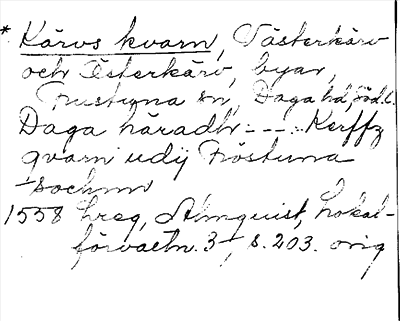 * Kärvs kvarn, Västerkärv
och Österkärv, byar,
Frustuna sn, Daga hd, Söd. l.
Daga häradh: - - -. Kerffz
qvarn udij Fröstuna
sochnn
1558 Lreg, Almquist, Lokal-
förvaltn. 31, s. 203. orig